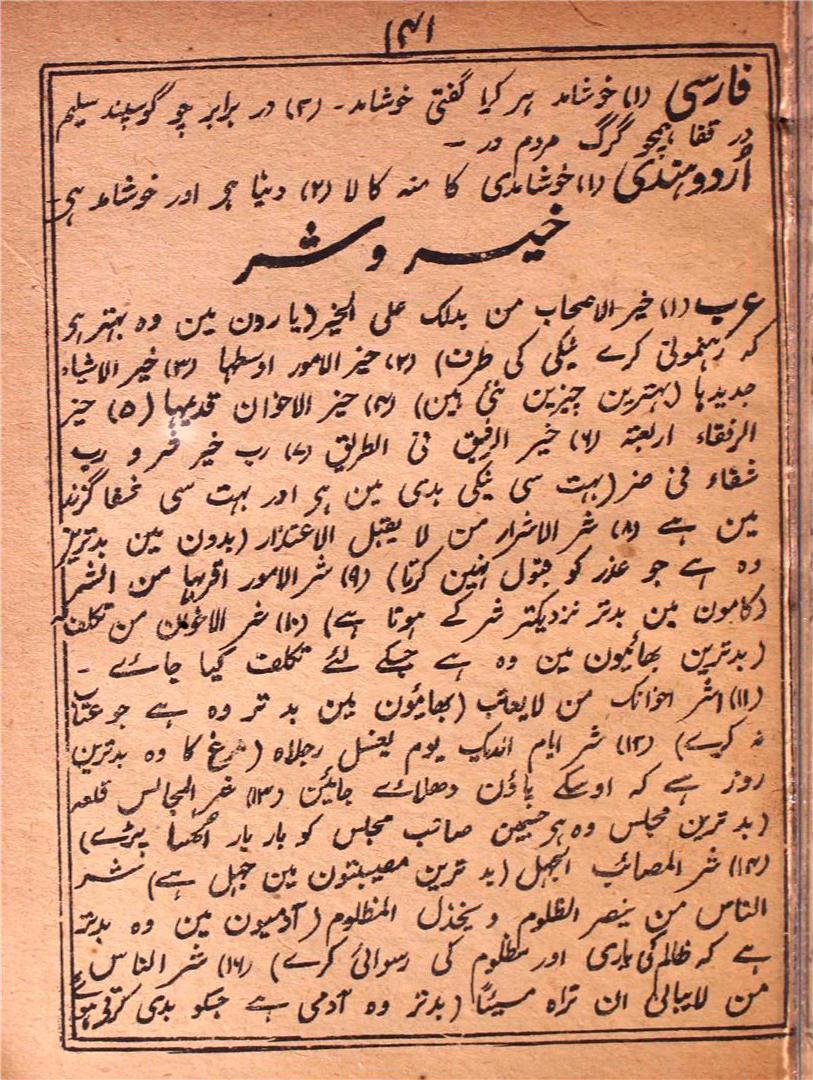 ۱۴۱
فارسی (۱) خوشامد ہر کرا گفتی خوشامد ـ (۲) در برابر چو گوسپند سلیم
در قفا ہمچو گرگ مردم در ـ
اُردو ہندی (۱) خوشامدی کا منہ کالا (۲) دنیا ہر اور خوشامد ہی
خیر و شر
عرب (۱) خیر الاصحاب من یدلک علی الخیر (یارون مین وہ بہتر ہر
کہ رہنمونی کرے نیکی کی طرف) (۲) خیر الامور اوسطہا (۳) خیر الاشیاء
جدیدہا (بہترین چیزین نئی ہین) (۴) خیر الاخوان قدیمہا (۵) خیر
الرفقاء اربعتہ (۶) خیر الرفیق فی الطریق (۷) رب خیر فی شر و رب
شفاء فی ضر (بہت سی نیکی بدی مین ہر اور بہت سی شفا گزند
مین ہے (۸) شر الاشرار من لا یقبل الاعتذار (بدون مین بدترین
وہ ہے جو عذر کو قبول نہین کرتا) (۹) شر الامور اقربہا من الشر
(کامون مین بدتر نزدیکتر شر کے ہوتا ہے) (۱۰) شر الاخوان من تکلف لہ
(بدترین بھائیون مین وہ ہے جسکے لئے تکلف کیا جاۓ ـ
(۱۱) شر اخوانک من لایعاتب (بھائیون مین بد تر وہ ہے جو عتاب
نہ کرے) (۱۲) شر ایام الدیک یوم یغسل رجلاہ (مرغ کا وہ بدترین
روز ہے کہ اوسکے پاؤن دھلاۓ جائین (۱۳) شر المجالس قلعہ
(بد ترین مجلس وہ ہر جسمین صاحب مجلس کو بار بار اٹھنا پڑے)
(۱۴) شر المصائب الجہل (بد ترین مصیبتون مین جہل ہے) شر
الناس من ینصر الظلوم و یخذل المظلوم (آدمیون مین وہ بدتر
ہے کہ ظالم کی یاری اور مظلوم کی رسوائی کرے) (۱۶) شر الناس
من لایبالی ان تراہ مسیئًا (بدتر وہ آدمی ہے جسکو بدی کرتے ہوۓ